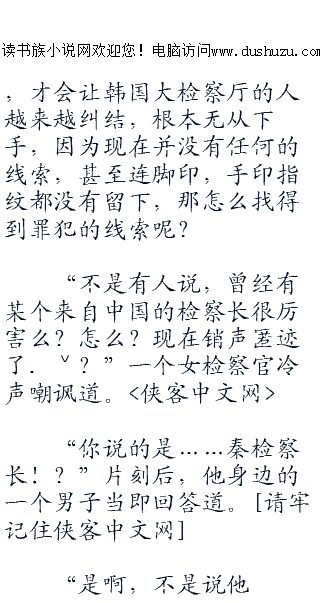 读书族小说网欢迎您！电脑访问www.dushuzu.com
，才会让韩国大检察厅的人
越来越纠结，根本无从下
手，因为现在并没有任何的
线索，甚至连脚印，手印指
纹都没有留下，那怎么找得
到罪犯的线索呢？
“不是有人说，曾经有
某个来自中国的检察长很厉
害么？怎么？现在销声匿迹
了．ˇ？”一个女检察官冷
声嘲讽道。<侠客中文网>
“你说的是……秦检察
长！？”片刻后，他身边的
一个男子当即回答道。[请牢
记住侠客中文网]
“是啊，不是说他